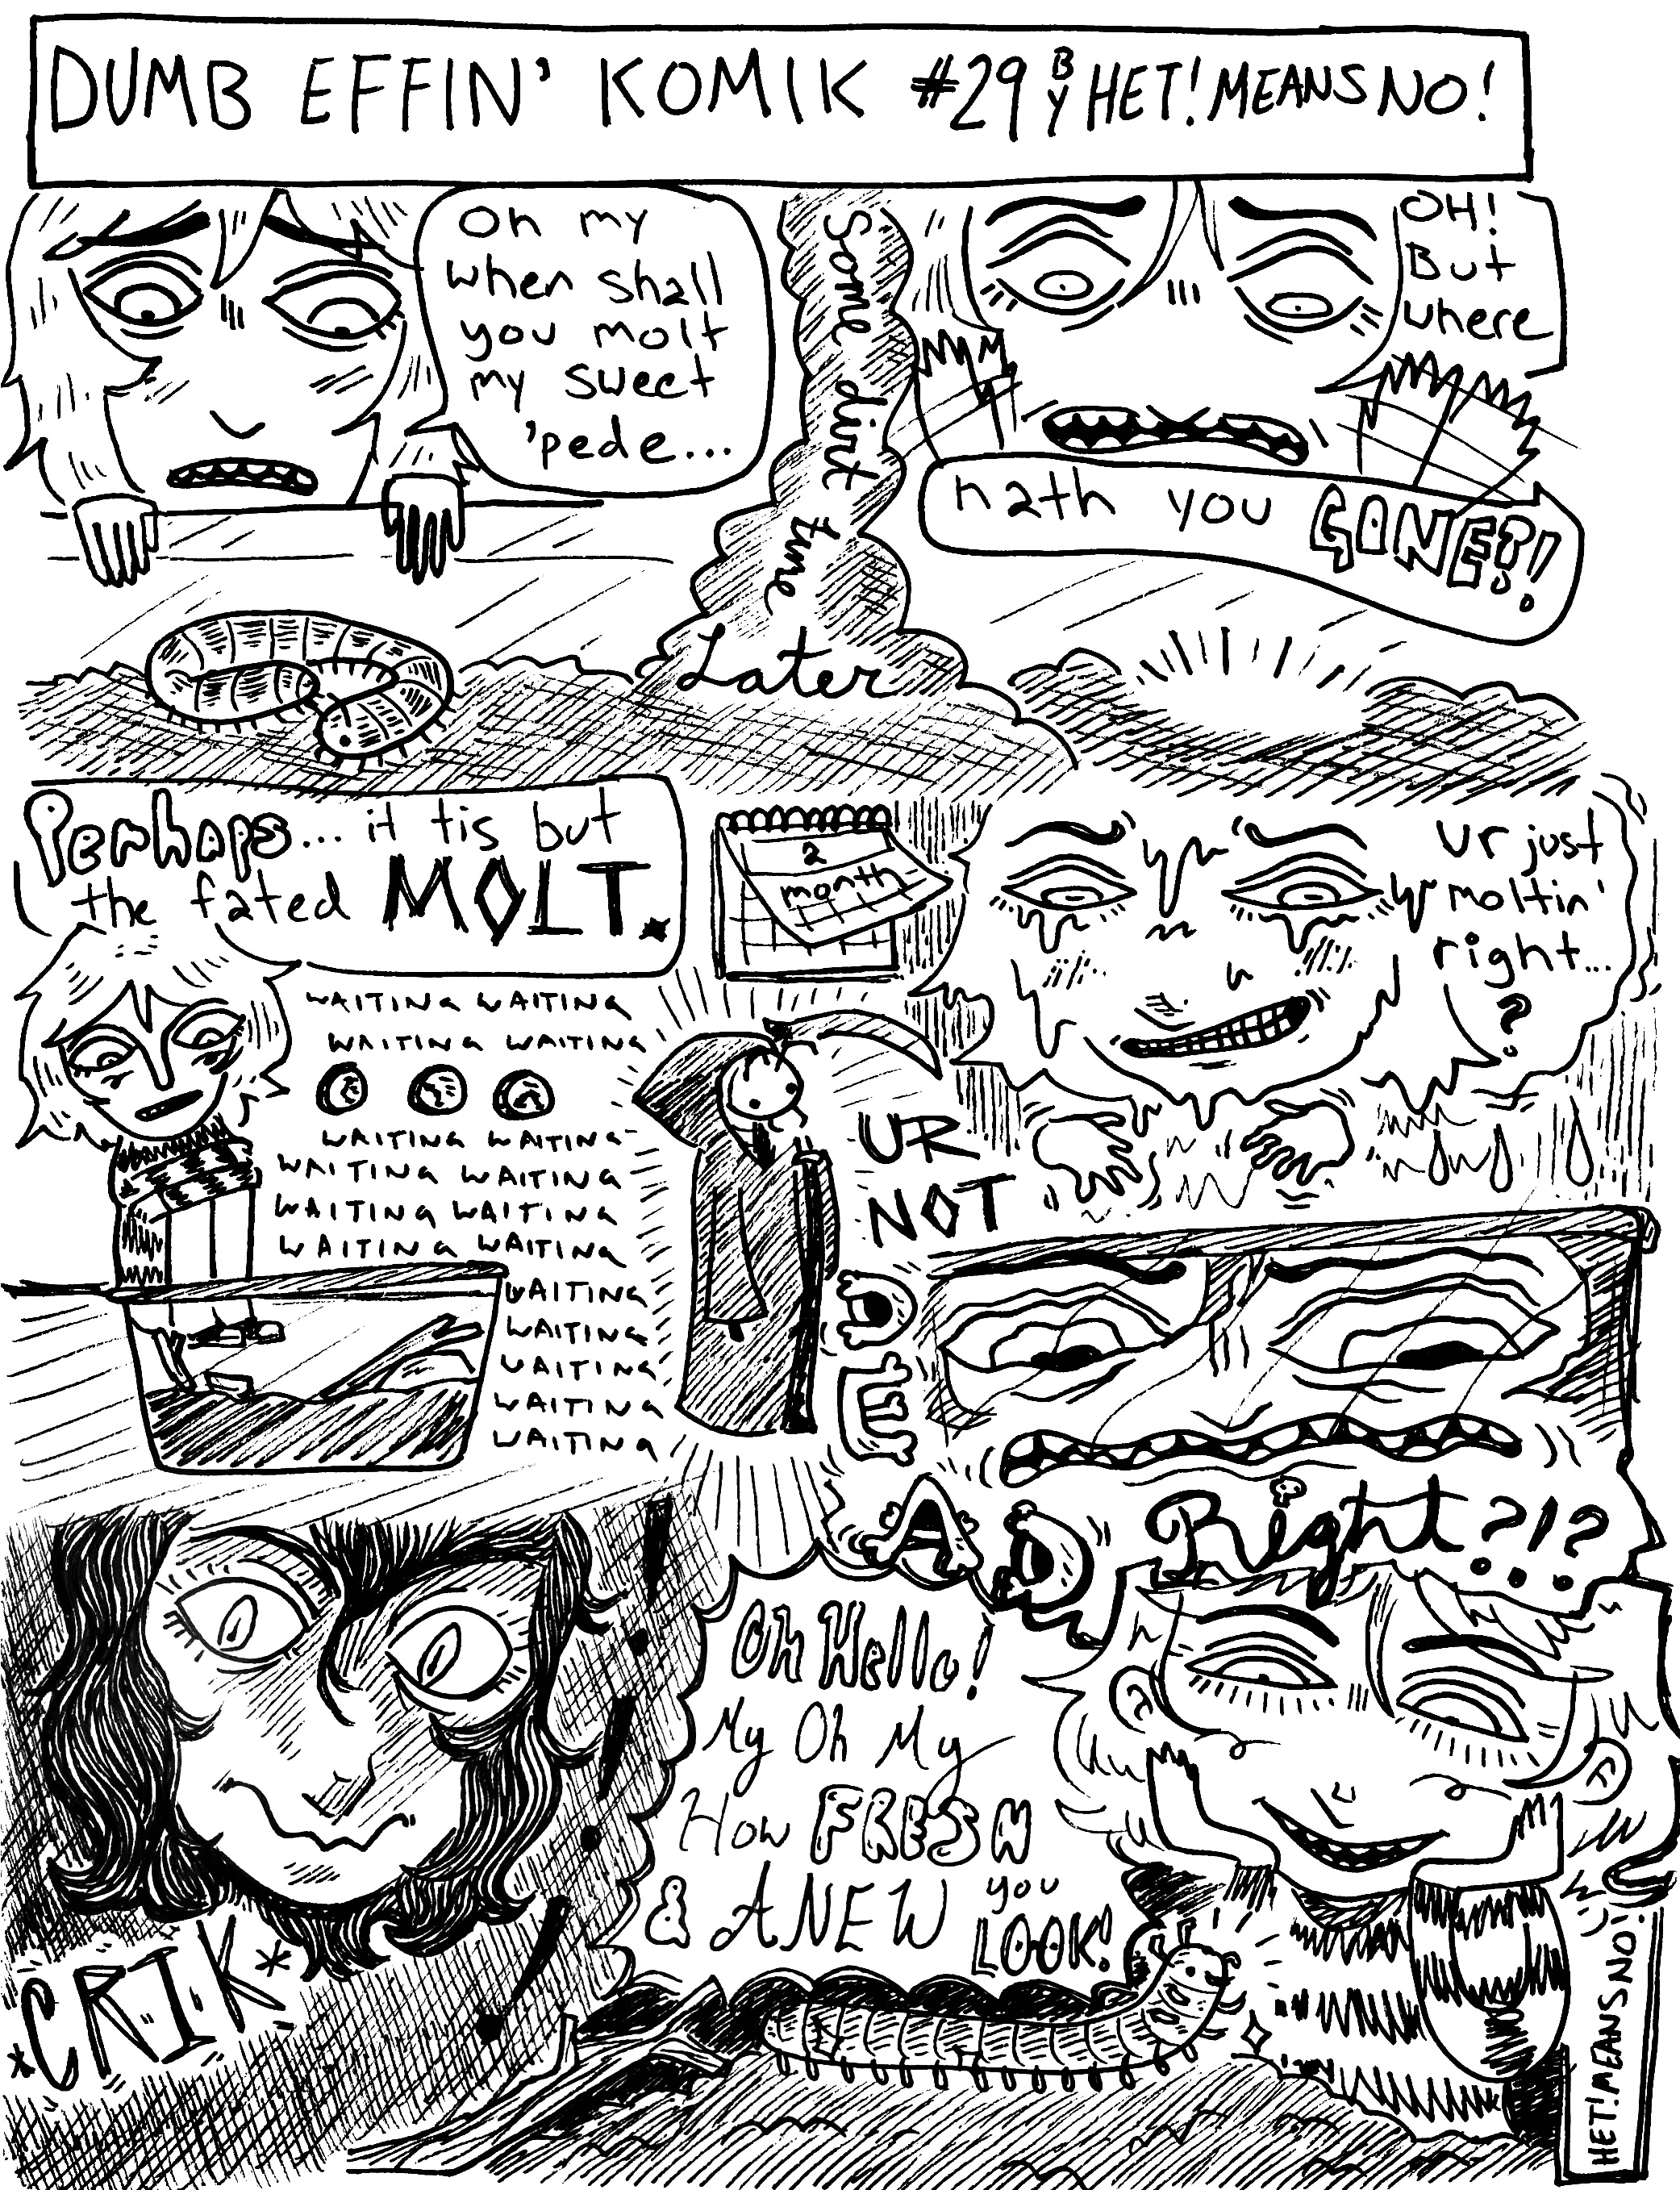 DUMB EFFIN' KOMIK #29 BY HET! MEANS NO!
Oh my
when shall
you molt
my sweet
'pede...
Some dirt time
Later
OH!
But
where
hath you GONE?!
Perhaps... it tis but
the fated MOLT.
WAITING WAITING
WAITING WAITING
WAITING WAITING
WAITING WAITING
WAITING WAITING
WAITING WAITING
WAITING
WAITING
WAITING
WAITING
WAITING
2
month
ur just
moltin'
right...
?
UR
NOT
DEAD
Right?!?
*CRIK*
Oh Hello!
My Oh My
How FRESH
& ANEW you
LOOK!
HET! MEANS NO!